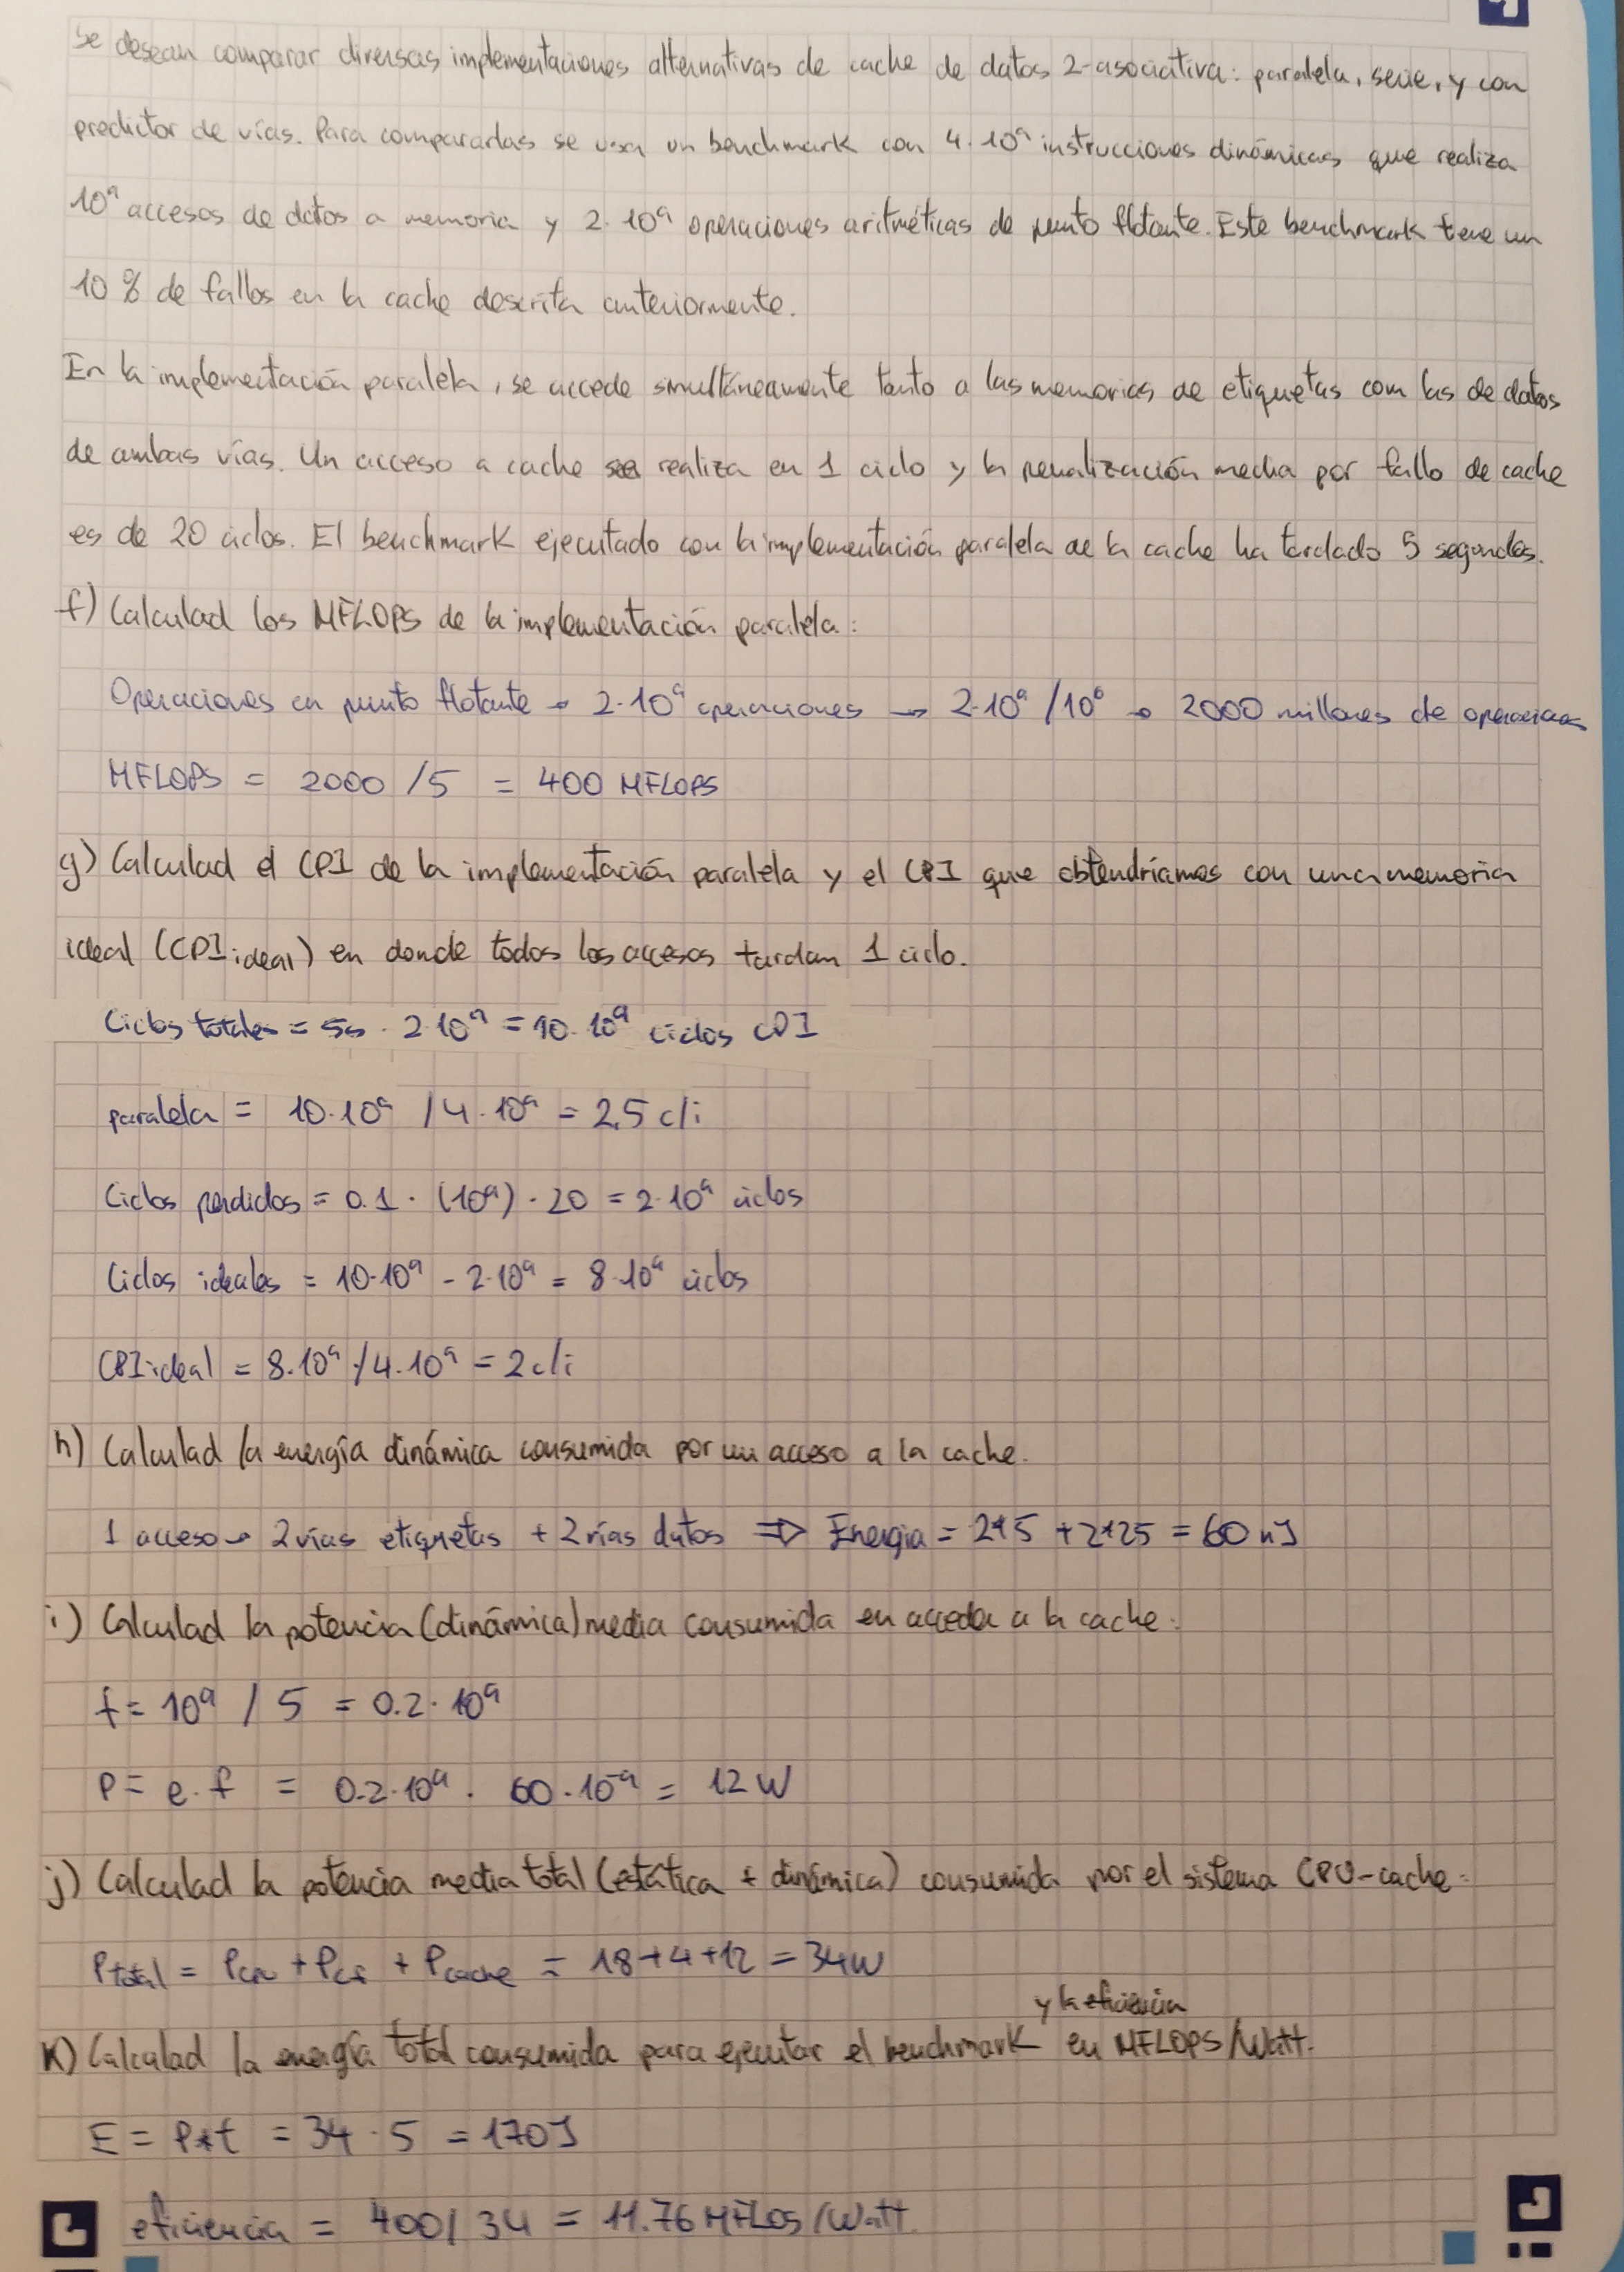 Se desean comparar diversas implementaciones alternativas de cache de datos 2-asociativa: paralela, serie, y con
predictor de vías. Para compararlas se usa un benchmark con 4·10⁹ instrucciones dinámicas que realiza
10⁹ accesos de datos a memoria y 2·10⁹ operaciones aritméticas de punto flotante. Este benchmark tene un
10% de fallos en la cache descrita anteriormente.
En la implementación paralela, se accede simultáneamente tanto a las memorias de etiquetas com las de datos
de ambas vías. Un acceso a cache se realiza en 1 ciclo y la penalización media por fallo de cache
es de 20 ciclos. El benchmark ejecutado con la implementación paralela de la cache ha tardado 5 segundos.
f) Calculad los MFLOPS de la implementación paralela:
Operaciones en punto flotante → 2·10⁹ operaciones → 2·10⁹ /10⁶ → 2000 millones de operaciones
MFLOPS = 2000 /5 = 400 MFLOPS
g) Calculad el CPI de la implementación paralela y el CPI que obtendríamos con una memoria
ideal (CPI ideal) en donde todos los accesos tardan 1 ciclo.
Ciclos totales = 5s · 2·10⁹ = 10·10⁹ ciclos CPI
paralela = 10·10⁹ / 4·10⁹ = 2,5 c/i
Ciclos perdidos = 0.1 · (10⁹) · 20 = 2·10⁹ ciclos
Ciclos ideales = 10·10⁹ - 2·10⁹ = 8·10⁹ ciclos
CPI ideal = 8·10⁹ / 4·10⁹ = 2 c/i
h) Calculad la energía dinámica consumida por un acceso a la cache.
1 acceso → 2 vías etiquetas + 2 vías datos ⇒ Energia = 2*5 + 2*25 = 60 nJ
i) Calculad la potencia (dinámica) media consumida en acceder a la cache:
f = 10⁹ / 5 = 0.2·10⁹
P = e·f = 0.2·10⁹ · 60·10⁻⁹ = 12 W
j) Calculad la potencia media total (estática + dinámica) consumida por el sistema CPU-cache:
Ptotal = Pcpu + Pcf + Pcache = 18+4+12 = 34W
y la eficiencia
K) Calculad la energía total consumida para ejecutar el benchmark en MFLOPS/Watt.
E = P*t = 34 · 5 = 170J
eficiencia = 400/34 = 11.76 MFLOS/Watt.